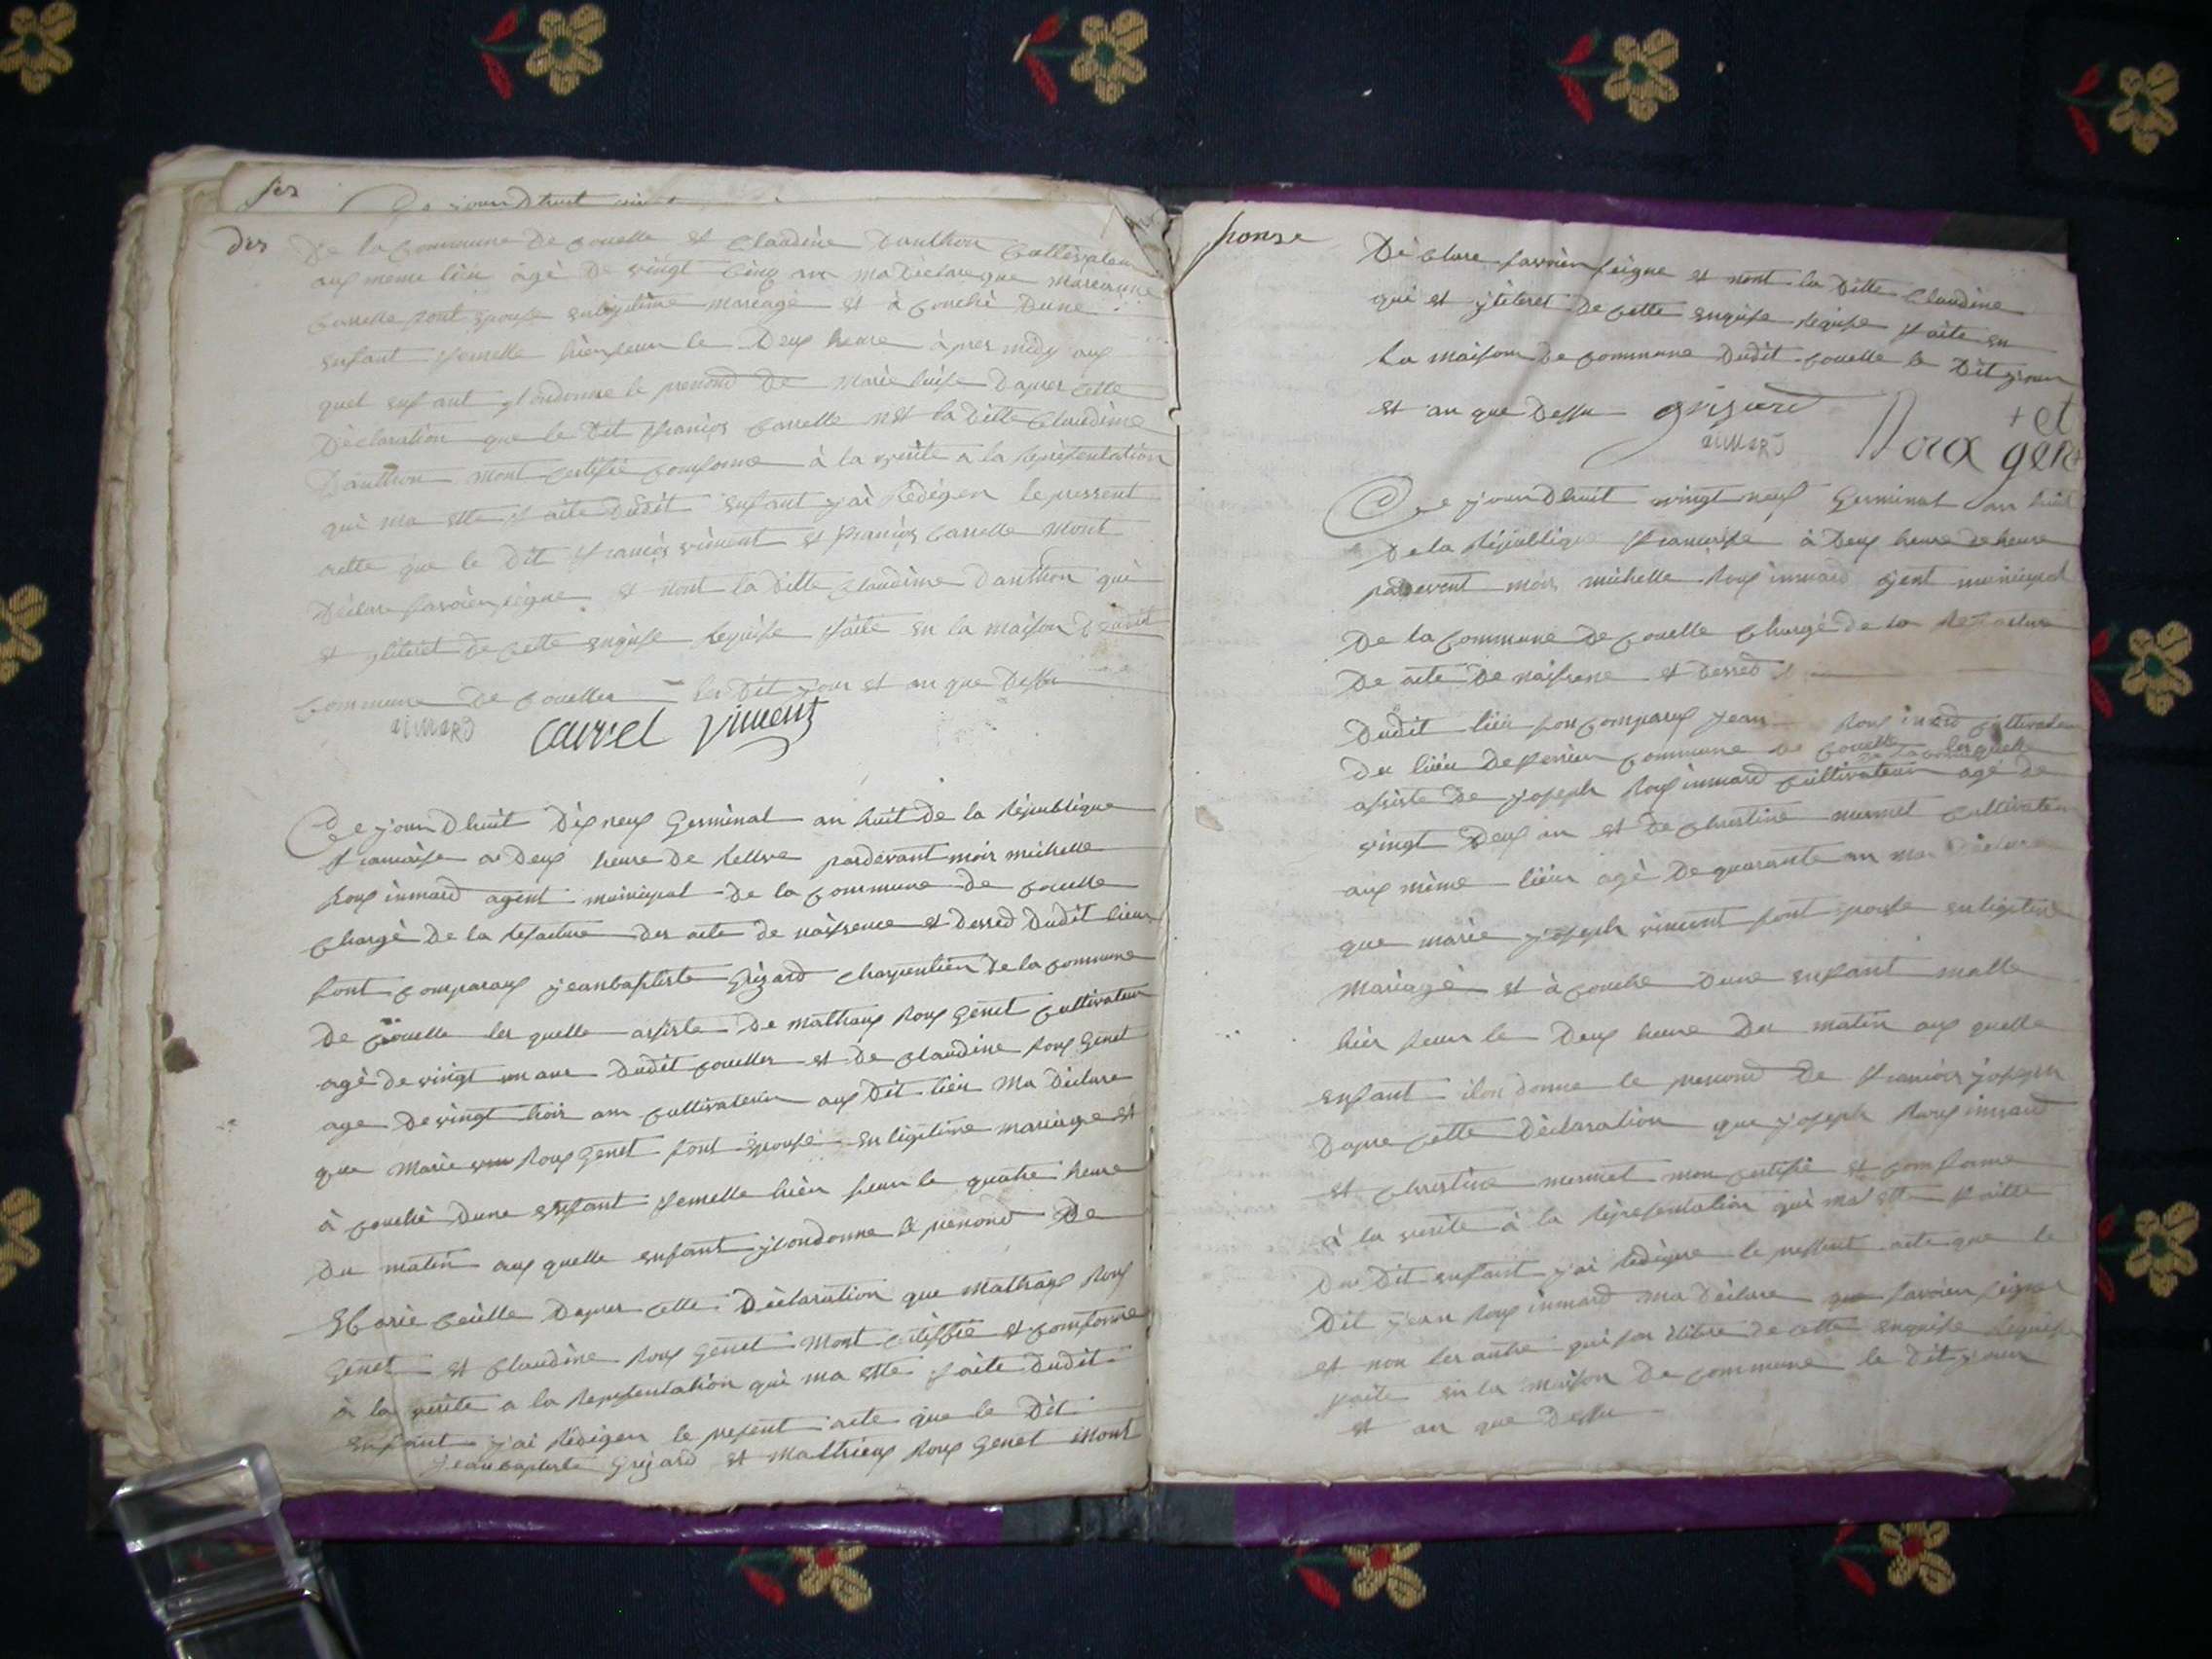 ses
Ce jourDhuit
Dix
De la Commune De Couelle et Claudine Danthon Cultivateur
aux meme lieu agé De vingt Cinq an ma Declare que Marianne
Carrelle sont epouse en legitime mariage et à Couché Dune
enfant femelle hier sur le Deux heure àpres midy aux
quel enfant ylondonne le prenond De Marie luise Dapres cette
Déclaration que le Dit françois Carrelle et la Ditte Claudine
Danthon mont certifié Comforme à la verite a la Représentation
qui ma ette faite Dudit enfant j'ai Rédigen le pressent
actte que le Dit françois viment et françois Carrelle mont
Déclare savoir signe et nont la Ditte Claudine Danthon qui
et yliteret De cette enquise Requise faite en la maison Dudit
Commune De Couelles les Dit jour et an que Dessu
aimaRD Carrel viment
Ce jourDhuit Dix neuf Germinal an huit De la République
francaise a Deux heure De Rellve pardevant mois michelle
Roux inmard agent municipal De la Commune De Couelle
Chargé De la Refacture Des acte de naissence et Dessed Dudit lieu
sont Comparaux jeanbaptiste Grizard Charpentier De la Commune
De Couelle les quelle assiste De mathaux Roux Genet Cultivateur
agé De vingt un ans Dudit Couelles et De Claudine Roux Genet
age De vingt trois ans Cultivateur aux Dit lieu Ma Déclare
que Marie Roux Genet sont Epouse en legitime mariage et
à Couché Dune enfant femelle hier sur le quatre heure
Du matin aux quelle enfant ylondonne le prenond De
Marie Ceuille Dapres cette Déclaration que Mathaux Roux
Genet et Claudine Roux Genet Mont Certiffié et Comforme
à la verite a la Representation qui ma ette faite Dudit
enfant j'ai Rédigen le present acte que le Dit
jeanbaptiste Grizard et Mathieux Roux Genet mont
honze
Déclare savoir signe et nont la Ditte Claudine
qui et yliteret De cette enquise Requise faite en
La maison De Commune Dudit Couelle le Dit jour
et an que Dessu grisard
aimaRD Rora + et
gen
Ce jourDhuit vingt neuf Germinal an huit
De la République francaise à Deux heure de heure
padevent mois michelle Roux inmard ajent municipal
De la Commune De Couelle Chargé De la Refacture
De acte De naissence et Dessed
Dudit lieu son Comparux jean Roux inard Cultivateur
Du lieu De Commune De Couelle les quelle
assiste De joseph Roux inmard Cultivateur agé De
vingt Deux an et De Christine mermet Cultivateur
aux même lieu agé De quarante an ma Déclare
que marie joseph viment sont epouse en legitime
mariage et à Couche Dune enfant malle
hier sur le Deux heure Du matin aux quelle
enfant ilon donne le prenond De francois joseph
Dapre Cette Déclaration que joseph Roux inmard
et Christine mermet mon Certifié et Comforme
à la verite à la Représentation qui ma ette faitte
Du Dit enfant j'ai Rédigere le pressent acte que le
Dit jean Roux inmard ma Déclare savoir signer
et non les autre qui son De cette enquise Requise
faite en la maison De Commune le Dit jour
et an que Dessu